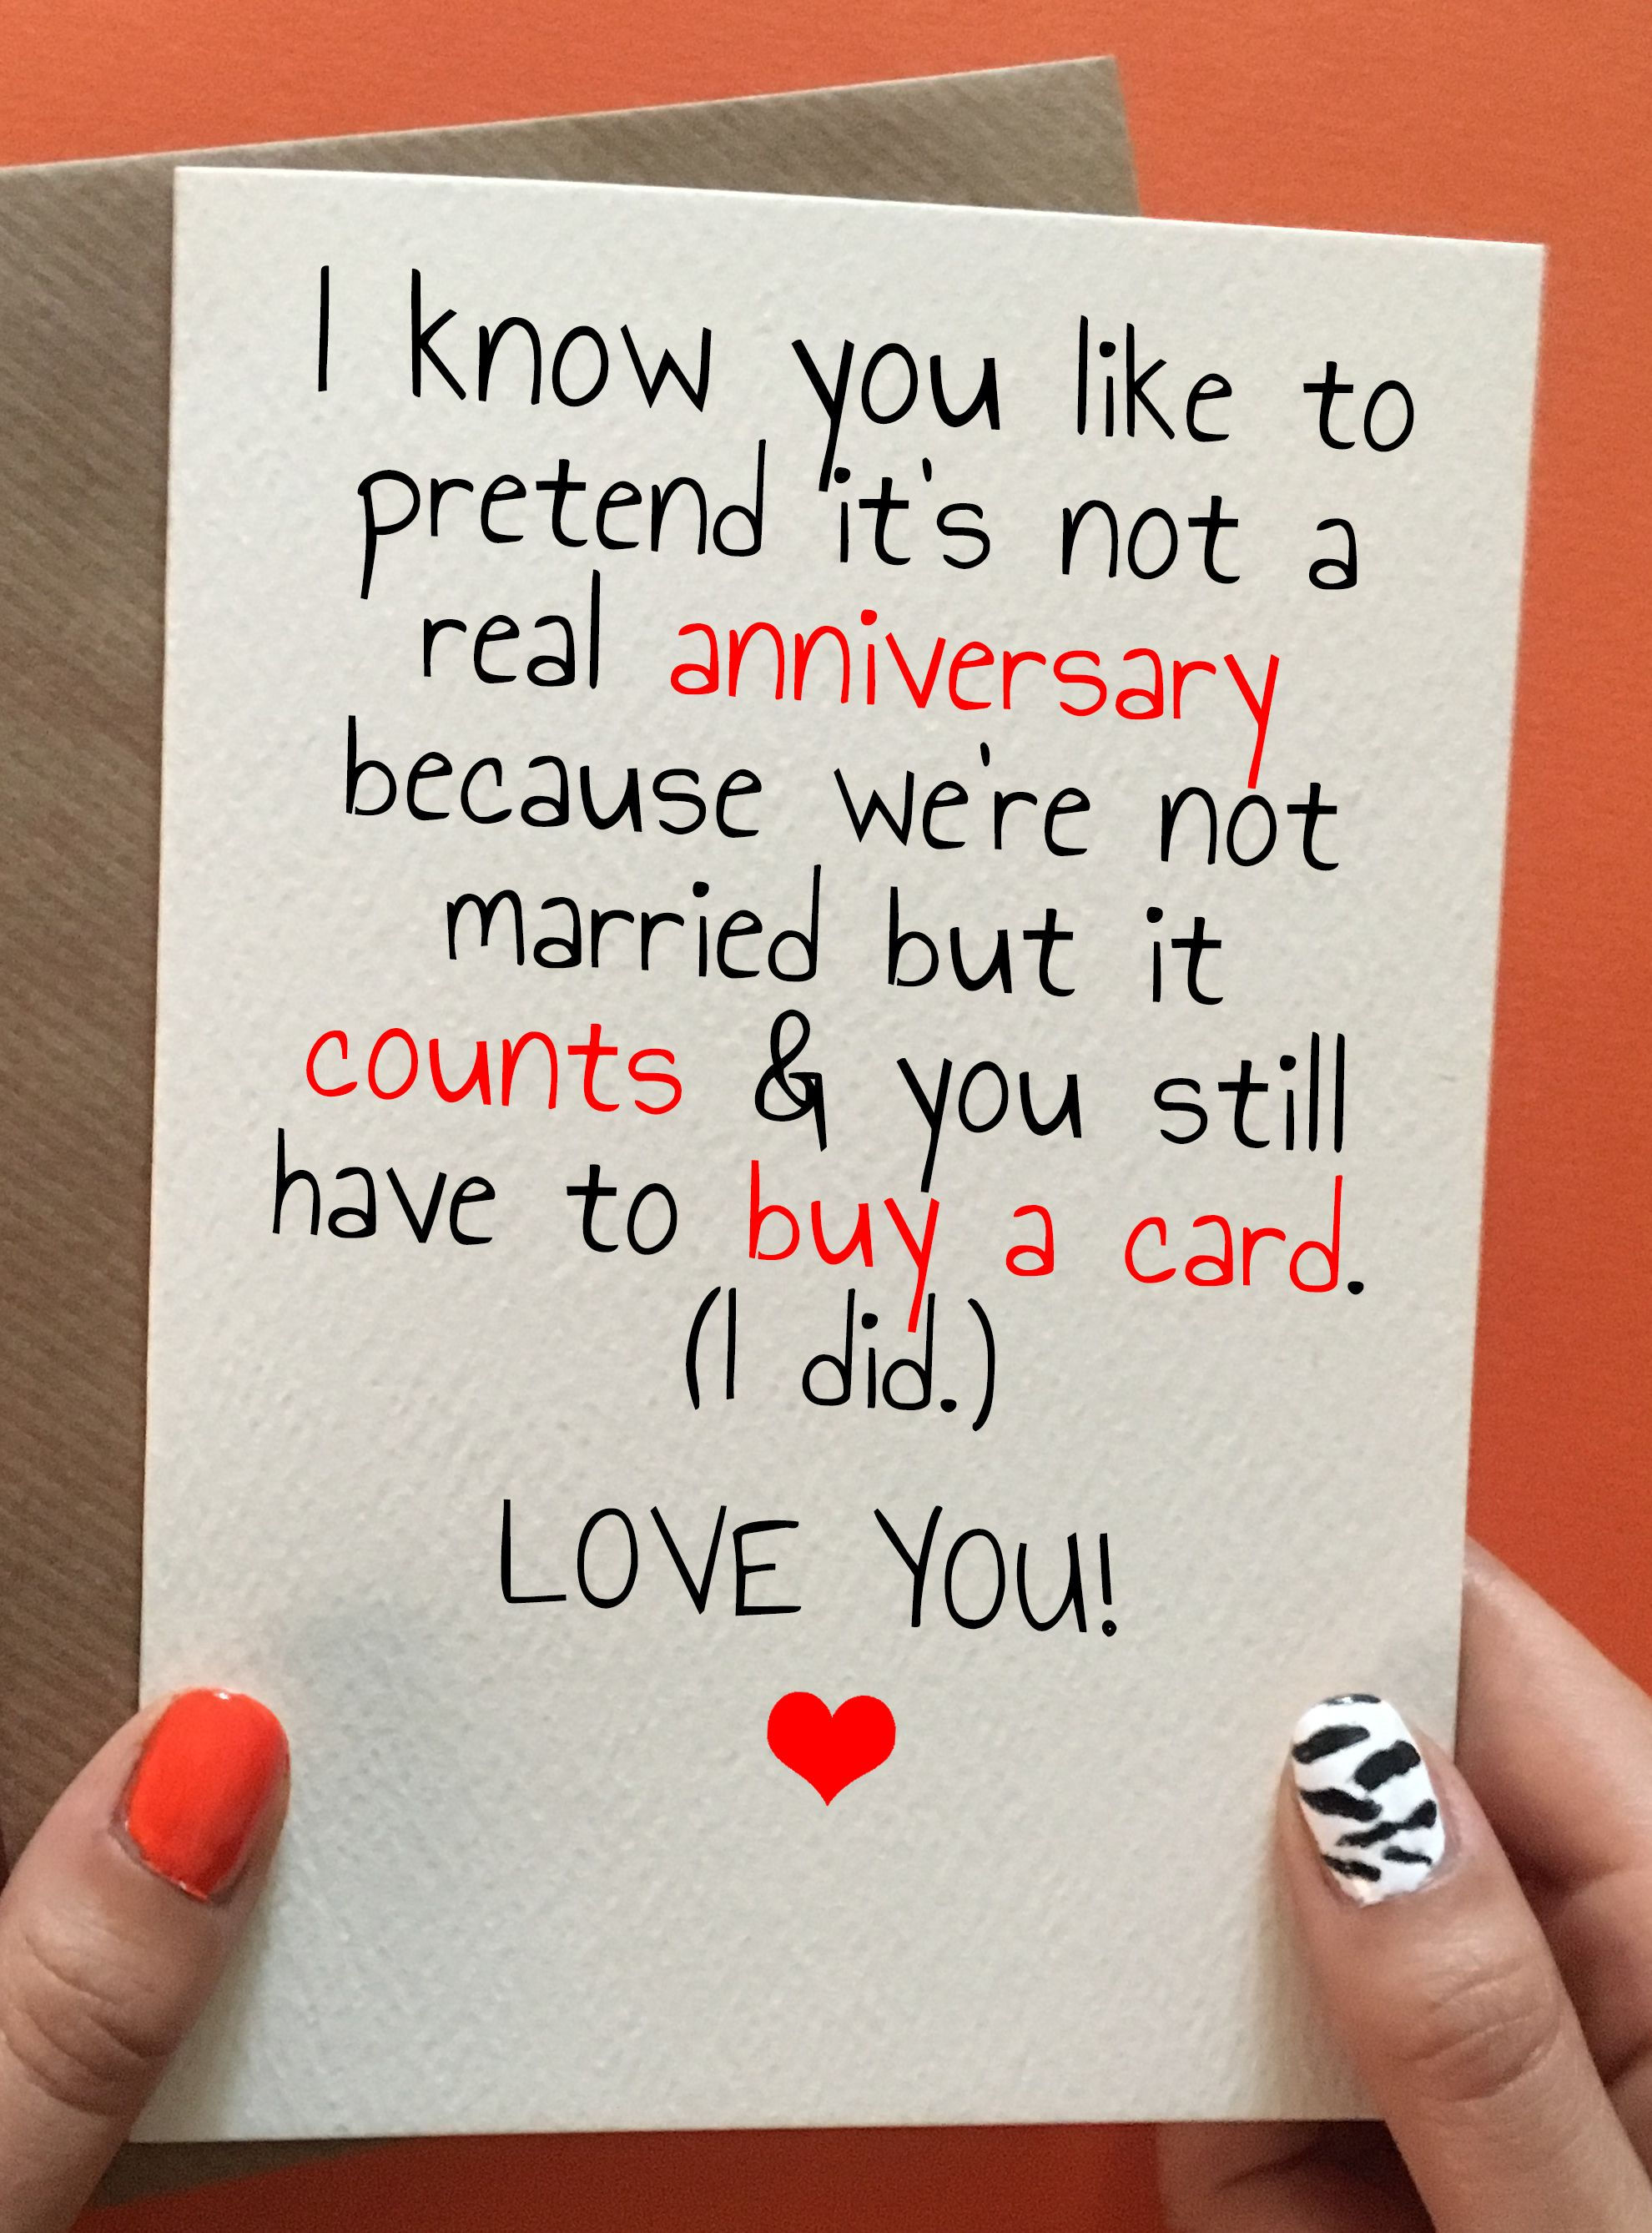 I know you like to
pretend it's not a
real anniversary
because we're not
married but it
counts & you still
have to buy a card.
(I did.)
LOVE YOU!